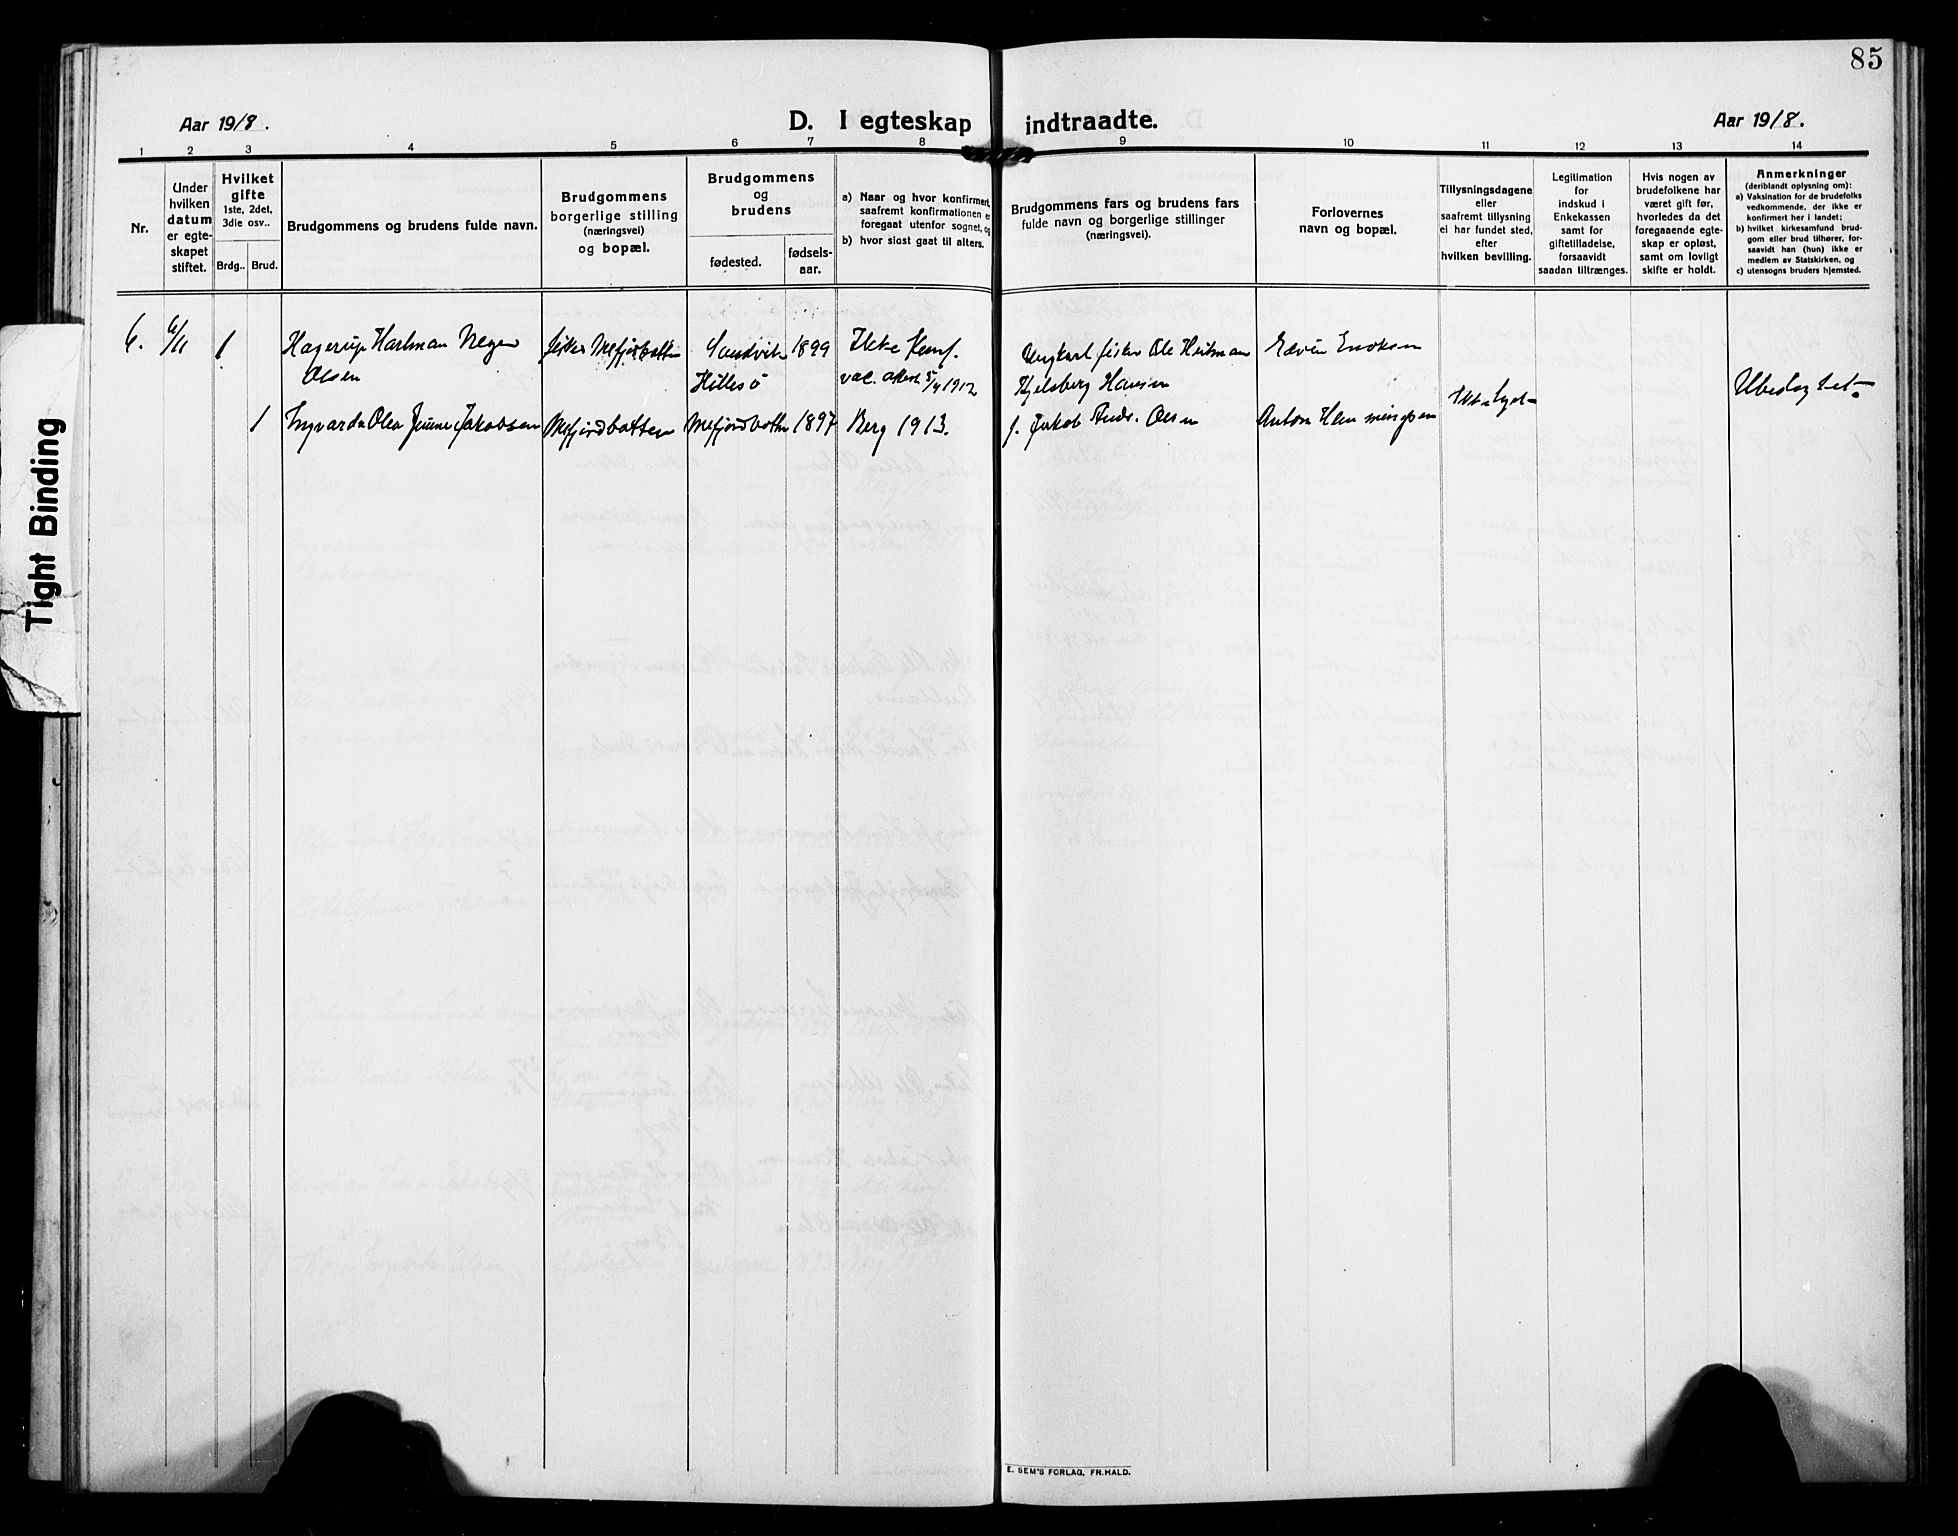 85
Aar 1918.
D. I egteskap indtraadte.
Aar 1918.
1 2 3 4 5 6 7 8 9 10 11 12 13 14
Nr.
Under
hvilken
datum
er egte-
skapet
stiftet.
Hvilket
gifte
1ste, 2det,
3die osv..
Brdg.. Brud.
Brudgommens og brudens fulde navn.
Brudgommens
borgerlige stilling
(næringsvei)
og bopæl.
Brudgommens
og
brudens
fødested.
fødsels-
aar.
a) Naar og hvor konfirmert,
saafremt konfirmationen er
foregaat utenfor sognet, og
b) hvor sidst gaat til alters.
Brudgommens fars og brudens fars
fulde navn og borgerlige stillinger
(næringsvei).
Forlovernes
navn og bopæl.
Tillysningsdagene
eller
saafremt tillysning
ei har fundet sted,
efter
hvilken bevilling.
Legitimation
for
indskud i
Enkekassen
samt for
giftetilladelse,
forsaavidt
saadan tiltrænges.
Hvis nogen av
brudefolkene har
været gift før,
hvorledes da det
foregaaende egte-
skap er opløst,
samt om lovligt
skifte er holdt.
Anmerkninger
(deriblandt oplysning om):
a) Vaksination for de brudefolks
vedkommende, der ikke er
konfirmert her i landet;
b) hvilket kirkesamfund brud-
gom eller brud tilhører, for-
saavidt han (hun) ikke er
medlem av Statskirken, og
c) utensogns bruders hjemsted.
6. 6/11 1 Hagerup Hartman Meyer
Olsen
fisker Mefjordbotten
Sandvik 1899
Hillesö
Ikke Konf.
vac. attest 5/4 1912
Ungkarl fisker Ole Heitman
Kjelsberg Hansen
Edvin Enoksen
Ubeslegtet.
1 Ingvarda Olea Jakobsen
Mefjordbotten Mefjordbotten 1897 Berg 1913.
f. Jakob Andr. Olsen
Anton Henningsen
Tight Binding
E. SEM'S FORLAG, FR.HALD.